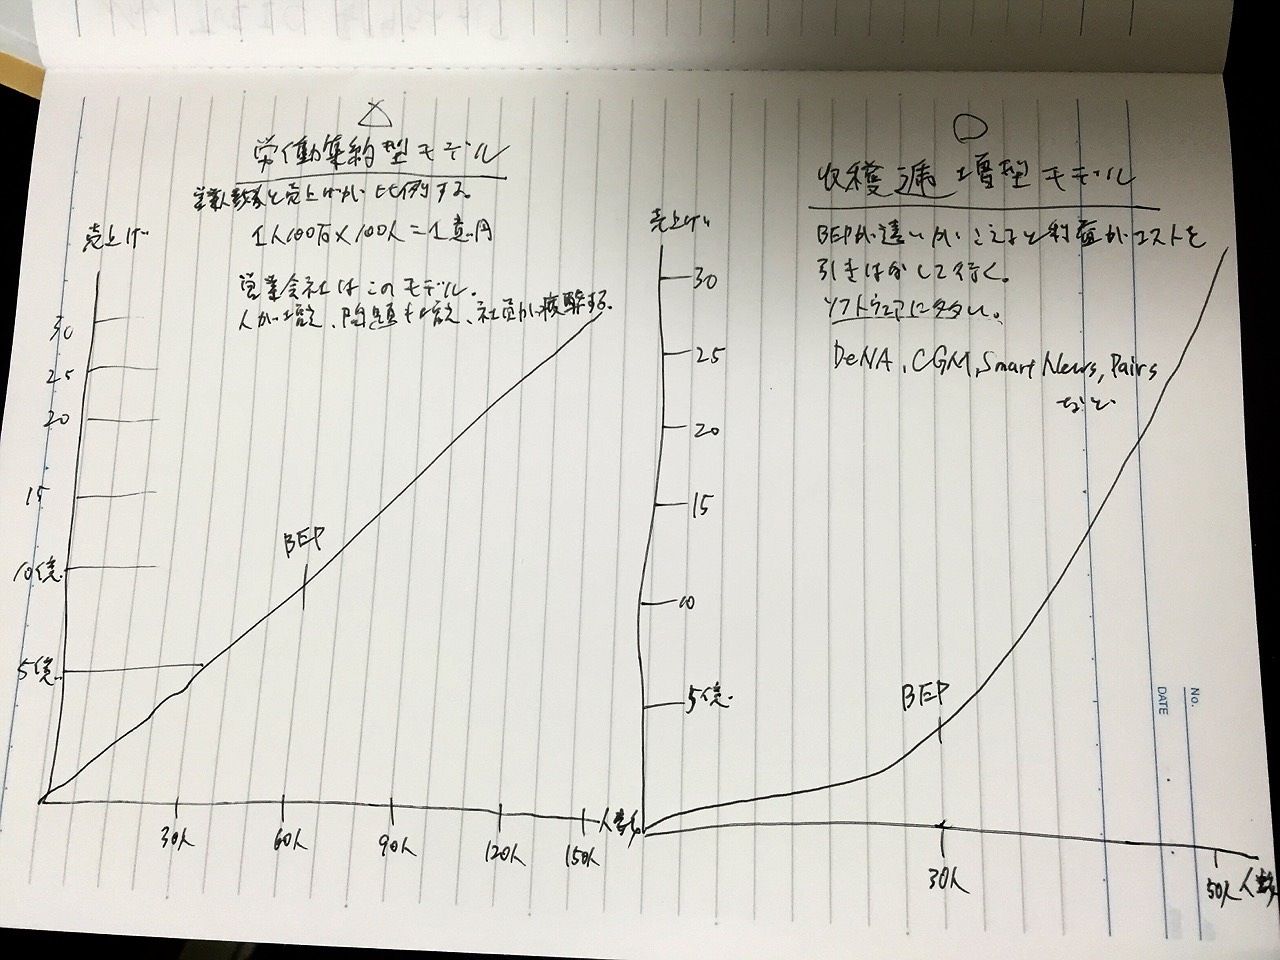 △
労働集約型モデル
営業人数と売上げが比例する。
1人100万×100人=1億円
営業会社はこのモデル。
人が増え、問題も増え、社員が疲弊する。
売上げ
30
25
20
15
10億
5億
BEP
30人
60人
90人
120人
150人
人数
○
収穫逓増型モデル
BEPが遠いがこえると利益がコストを
引きはなして行く。
ソフトウェアに多い。
DeNA、CGM、Smart News、Pairs
など
売上げ
30
25
20
15
10
5億
BEP
30人
50人
人数
No.
DATE